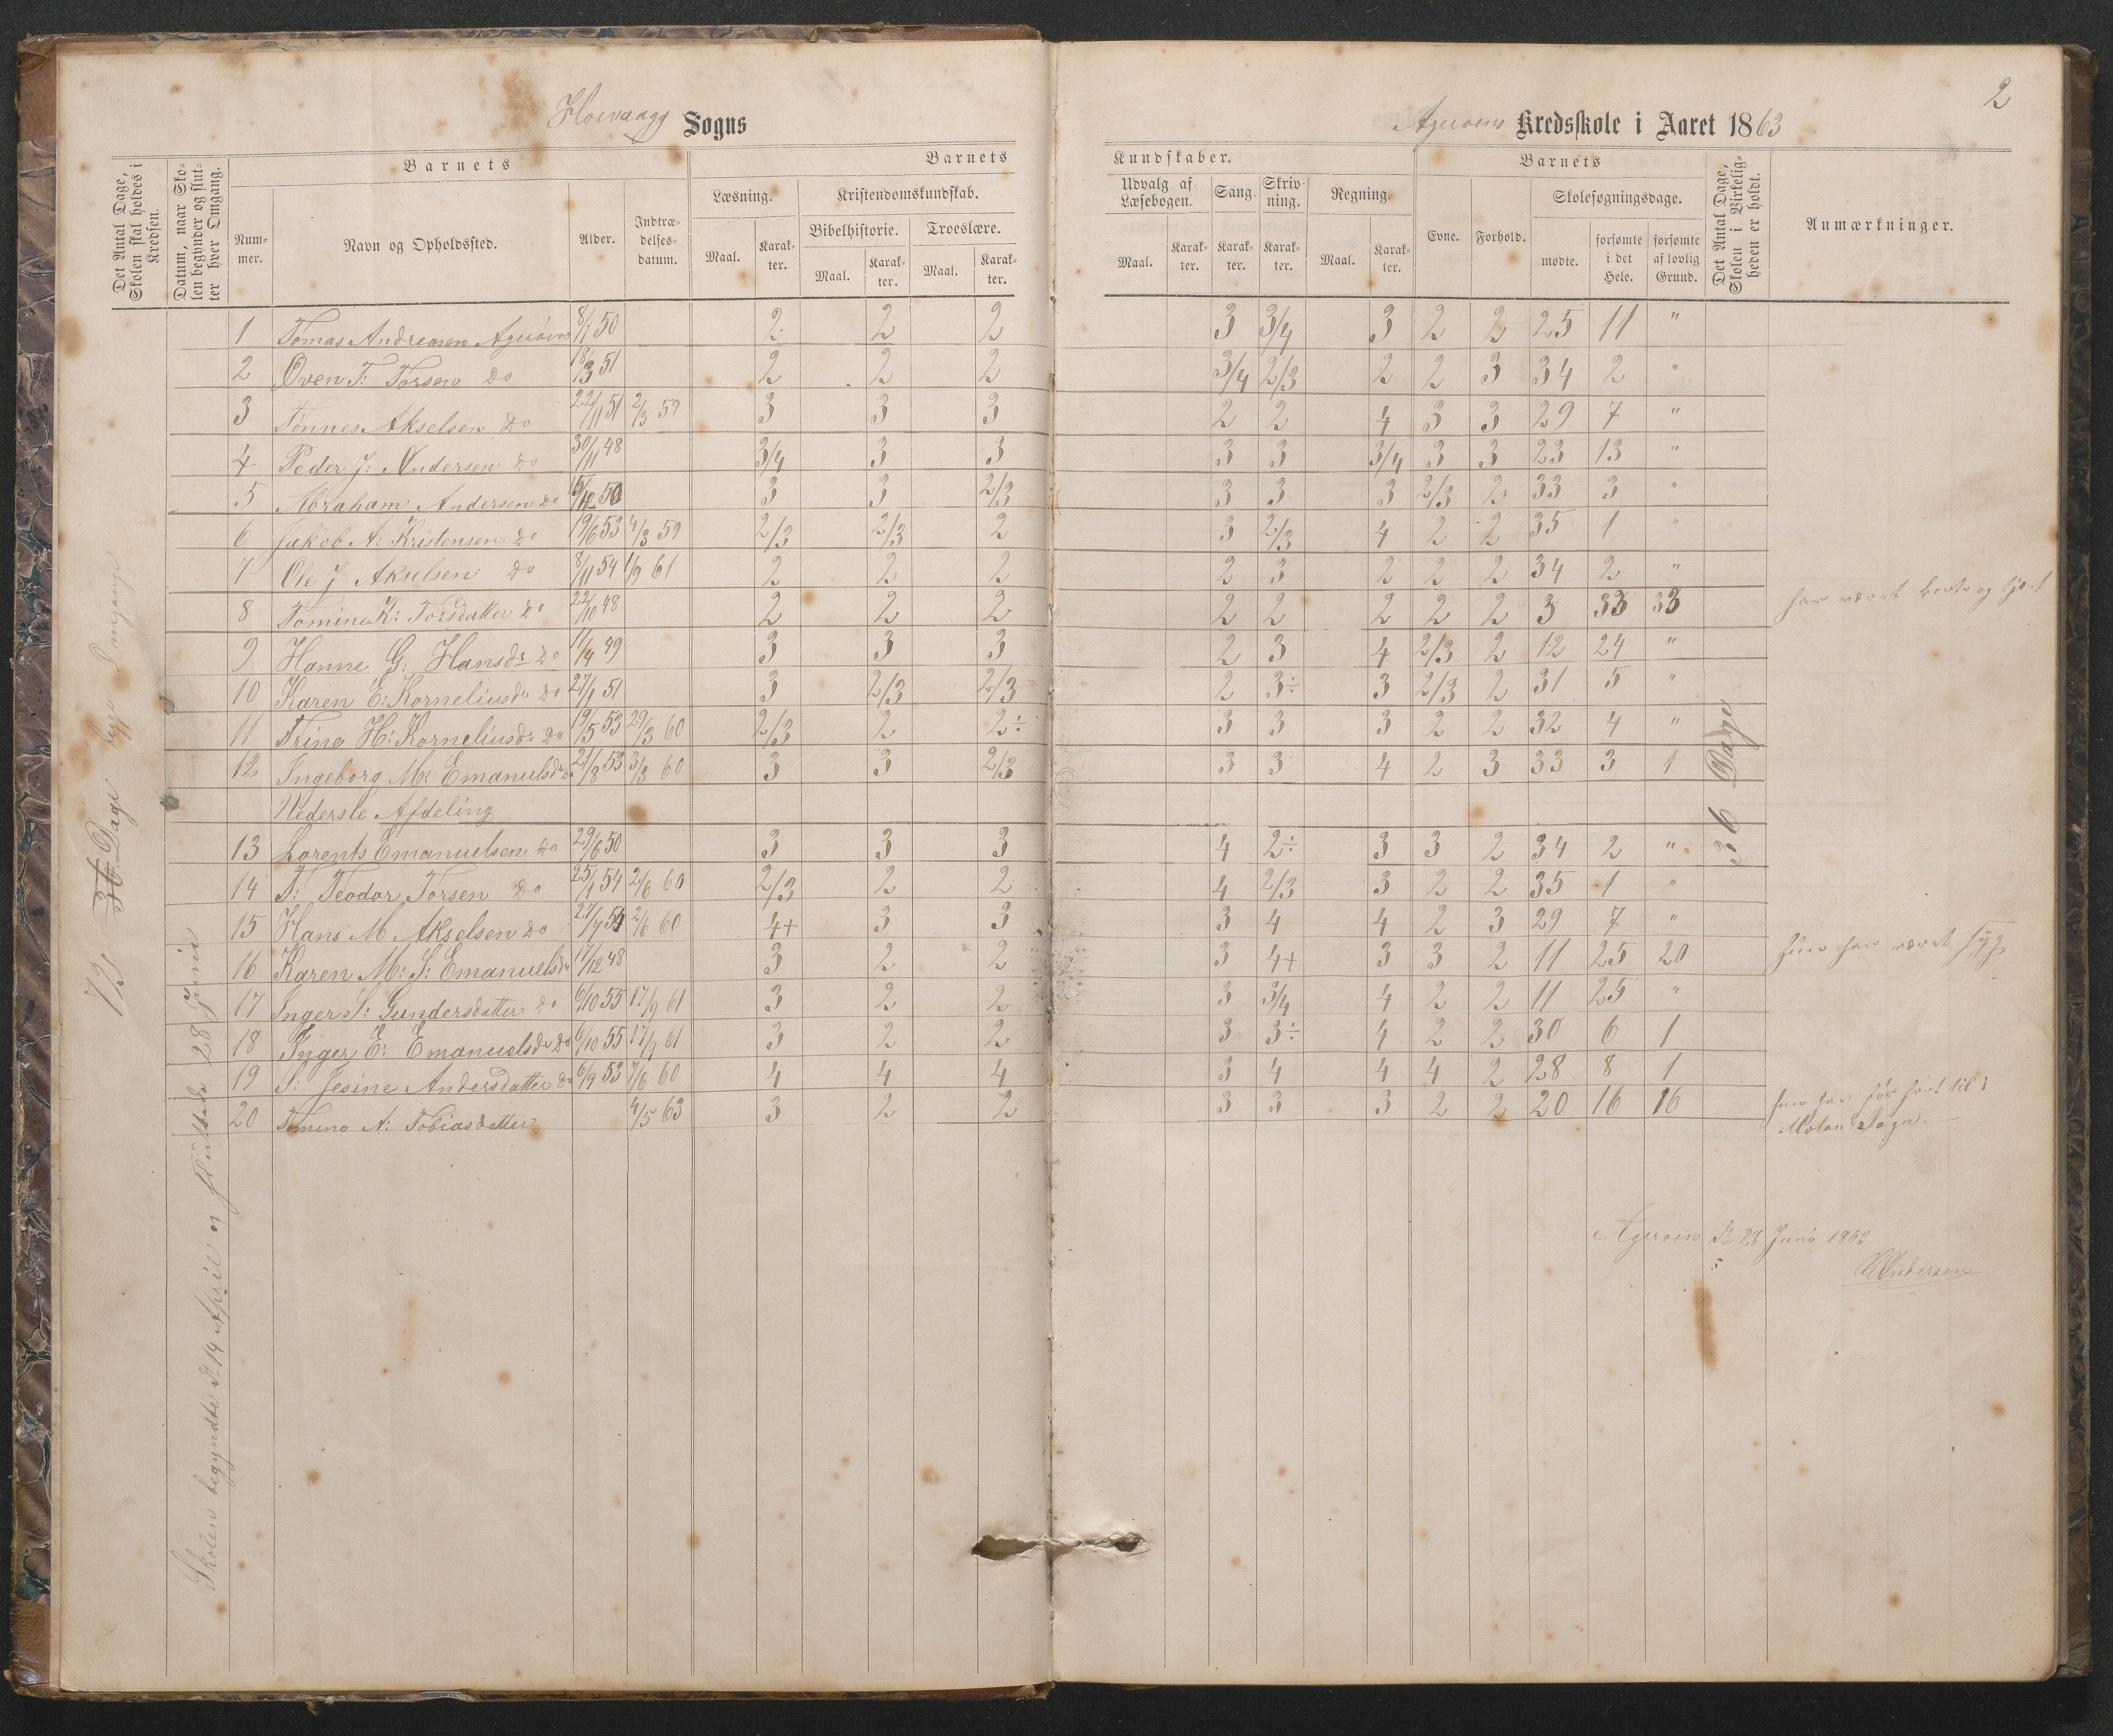 2
Høivaagg Sogns
Ageröens Kredsskole i Aaret 1863
Det Antal Dage, Skolen skal holdes i Kredsen.
Datum, naar Skolen begynder og slutter hver Omgang.
Barnets
Nummer.
Navn og Opholdssted.
Alder.
Indtrædelsesdatum.
Barnets Kundskaber.
Læsning.
Maal.
Karakter.
Kristendomskundskab.
Bibelhistorie.
Maal.
Karakter.
Troeslære.
Maal.
Karakter.
Udvalg af Læsebogen.
Maal.
Karakter.
Sang.
Karakter.
Skrivning.
Karakter.
Regning.
Maal.
Karakter.
Barnets
Evne.
Forhold.
Skolesøgningsdage.
mødte.
forsømte i det Hele.
forsømte af lovlig Grund.
Det Antal Dage, Skolen i Virkeligheden er holdt.
Anmærkninger.
1 Tomas Andreasen Ageröen 8/1 50 2 2 2 3 3/4 3 2 2 25 11 "
2 Oven T: Torsen do 18/3 51 2 2 2 3/4 2/3 2 2 3 34 2 "
3 Tønnes Akselsen do 22/11 51 2/3 59 3 3 3 2 2 4 3 3 29 7 "
4 Peder J: Andersen do 30/11 48 3/4 3 3 3 3 3/4 3 3 23 13 "
5 Abraham Andersen do 6/12 50 3 3 2/3 3 3 3 2/3 2 33 3 "
6 Jakob A: Kristensen do 19/6 53 4/3 59 2/3 2/3 2 3 2/3 4 2 2 35 1 "
7 Ole J Akselsen do 8/11 54 1/9 61 2 2 2 2 3 2 2 2 34 2 "
8 Tomine K: Torsdatter do 22/10 48 2 2 2 2 2 2 2 2 3 33 33 har været borte og tjent
9 Hanne G: Hansdr do 11/4 49 3 3 3 2 3 4 2/3 2 12 24 "
10 Karen E: Korneliusdr do 27/1 51 3 2/3 2/3 2 3÷ 3 2/3 2 31 5 "
11 Trine H: Korneliusdr do 19/5 53 29/3 60 2/3 2 2÷ 3 3 3 2 2 32 4 "
12 Ingeborg M: Emanuelsdr do 21/8 53 3/3 60 3 3 2/3 3 3 4 2 3 33 3 1
Nederste Afdeling
13 Lorents Emanuelsen do 29/6 50 3 3 3 4 2÷ 3 3 2 34 2 "
14 T: Teodor Torsen do 25/1 54 2/6 60 2/3 2 2 4 2/3 3 2 2 35 1 "
15 Hans M Akselsen do 27/7 54 2/6 60 4+ 3 3 3 4 4 2 3 29 7 "
16 Karen M: S: Emanuelsdr 17/12 48 3 2 2 3 4+ 3 3 2 11 25 20 hun har været syg
17 Inger S: Gundersdatter do 6/10 55 17/9 61 3 2 2 3 3/4 4 2 2 11 25 "
18 Inger E: Emanuelsdr do 6/10 55 17/9 61 3 2 2 3 3÷ 4 2 2 30 6 1
19 S: Jesine Andersdatter do 6/9 53 7/6 60 4 4 4 3 4 4 4 2 28 8 1
20 Tomine A: Tobiasdatter 4/5 63 3 2 2 3 3 3 2 2 20 16 16 hun har før hørt til i
Moland Sogn.
73 36 Dage Omgange
Skolen begyndte d. 14 April og sluttede 28 Juni
36 Dage
Ageröen d. 28 Juni 1863
Andersen